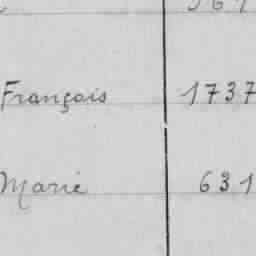 François 1737
Marie 631